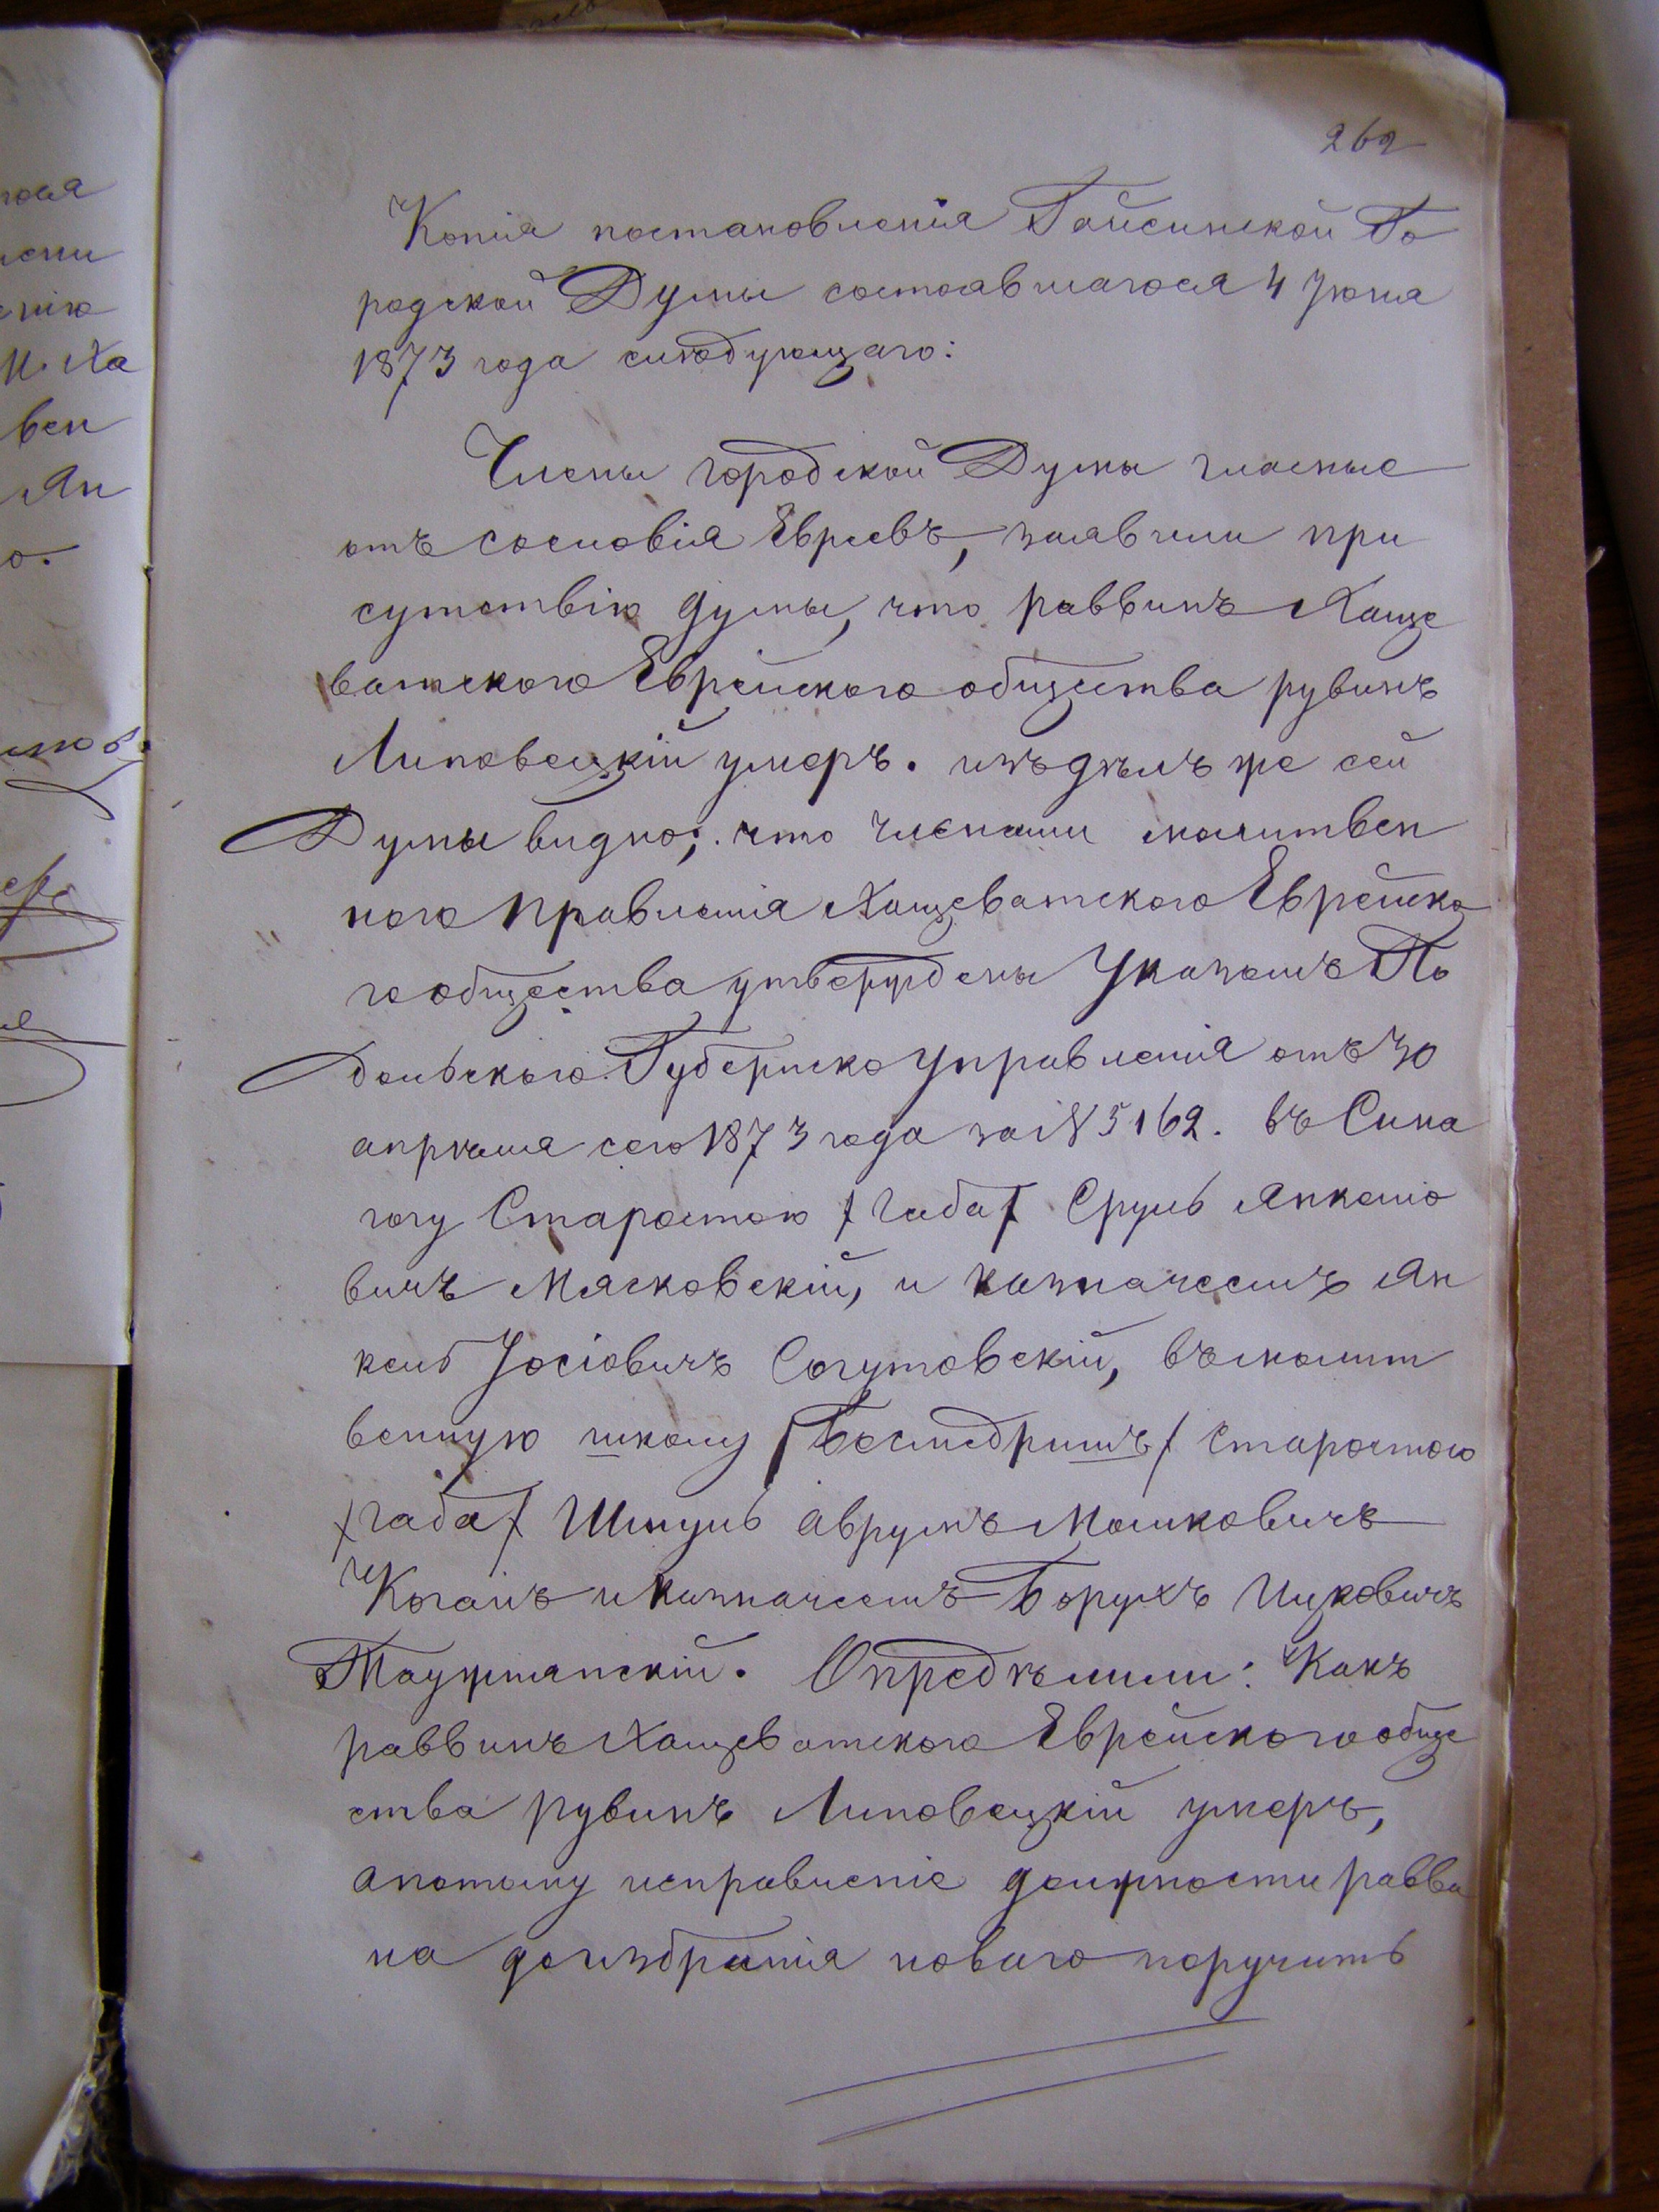 262
Копія постановленія Гайсинской Го
родской Думы состоявшагося 4 Іюня
1873 года слѣдующаго:
Члены городской Думы гласные
отъ сословія Евреевъ, заявили при
сутствію думы, что раввинъ Хаще
ватского Еврейского общества рувинъ
Липовецкій умеръ. изъ дѣлъ же сей
Думы видно; что членами молитвен
ного правленія Хащеватского Еврейско
го общества утверждены Указомъ По
дольского Губернско управленія отъ 30
апрѣля сего 1873 года за № 5162. въ Сина
гогу Старостою /габа/ Сруль Янкелио
вичъ Мясковскій, и казначеемъ Ян
кель Іосіовичъ Согутовскій, въ молит
венную школу /Бесмедришъ/ старостою
/габа/ Шмуль Аврумъ Мошковичъ
Коганъ и казначеемъ Борухъ Ицковичъ
Таужнянскій. Опредѣлили: Какъ
раввинъ Хащеватского Еврейского обще
ства рувинъ Липовецкій умеръ,
а потому исправленіе должности равви
на до избранія нового поручить